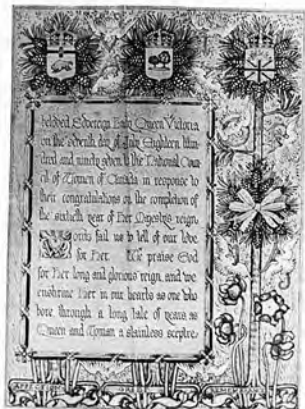 beloved Sovereign Lady Queen Victoria
on the seventh day of July Eighteen Hun
dred and ninety seven to the National Coun
cil of Women of Canada in response to
their congratulations on the completion of
the sixtieth year of Her Majesty's reign.
Words fail us to tell of our love
for Her. We praise God
for Her long and glorious reign, and we
enshrine Her in our hearts as one who
bore, through a long tale of years, as
Queen and Woman a stainless sceptre.